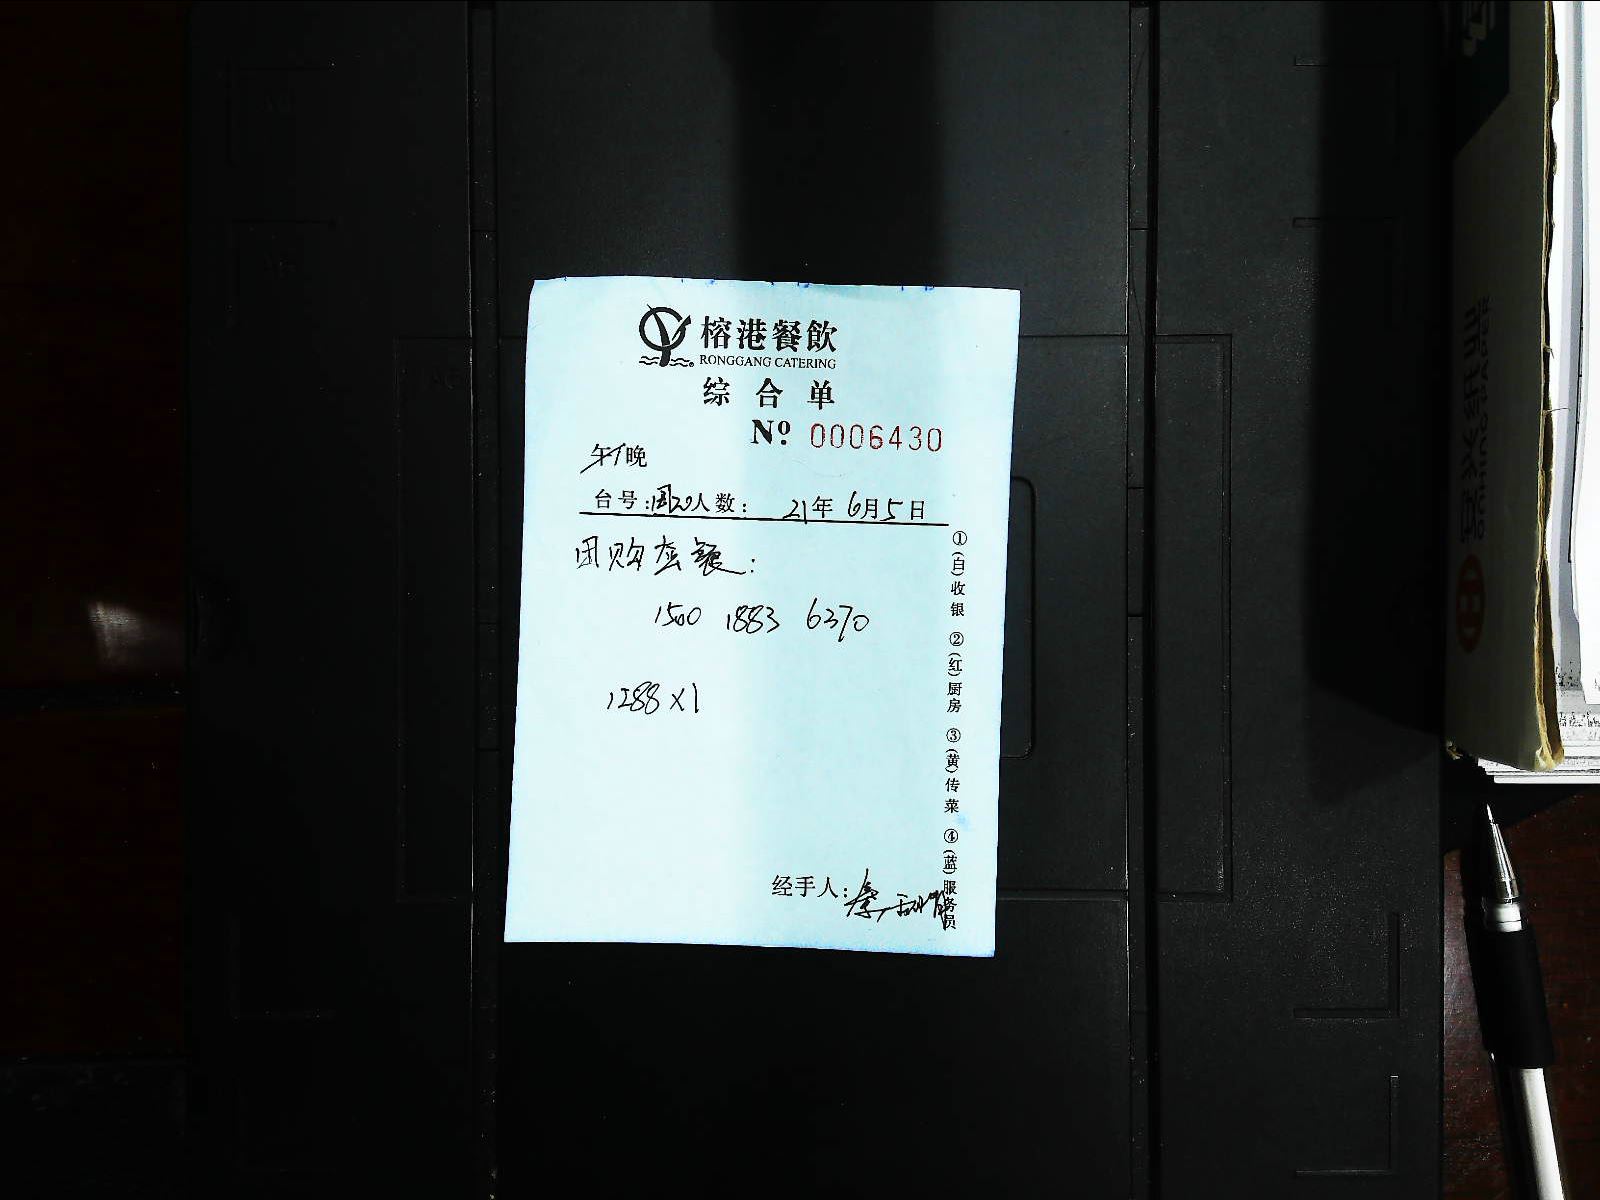 榕港餐飲
RONGGANG CATERING
综合单
Nº 0006430
午/晚
台号: 人数: 21年6月5日
团购套餐:
1500 1883 6270
1288×1
经手人:
①(白)收银 ②(红)厨房 ③(黄)传菜 ④(蓝)服务员